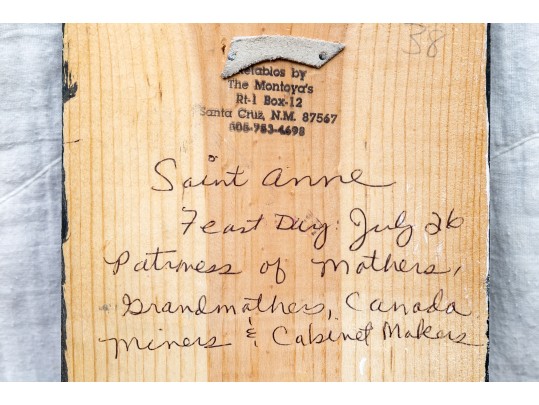 38
Retablos by
The Montoya's
Rt-1 Box-12
Santa Cruz, N.M. 87567
Saint Anne
Feast Day: July 26
Patroness of Mothers,
Grandmothers, Canada
Miners & Cabinet Makers